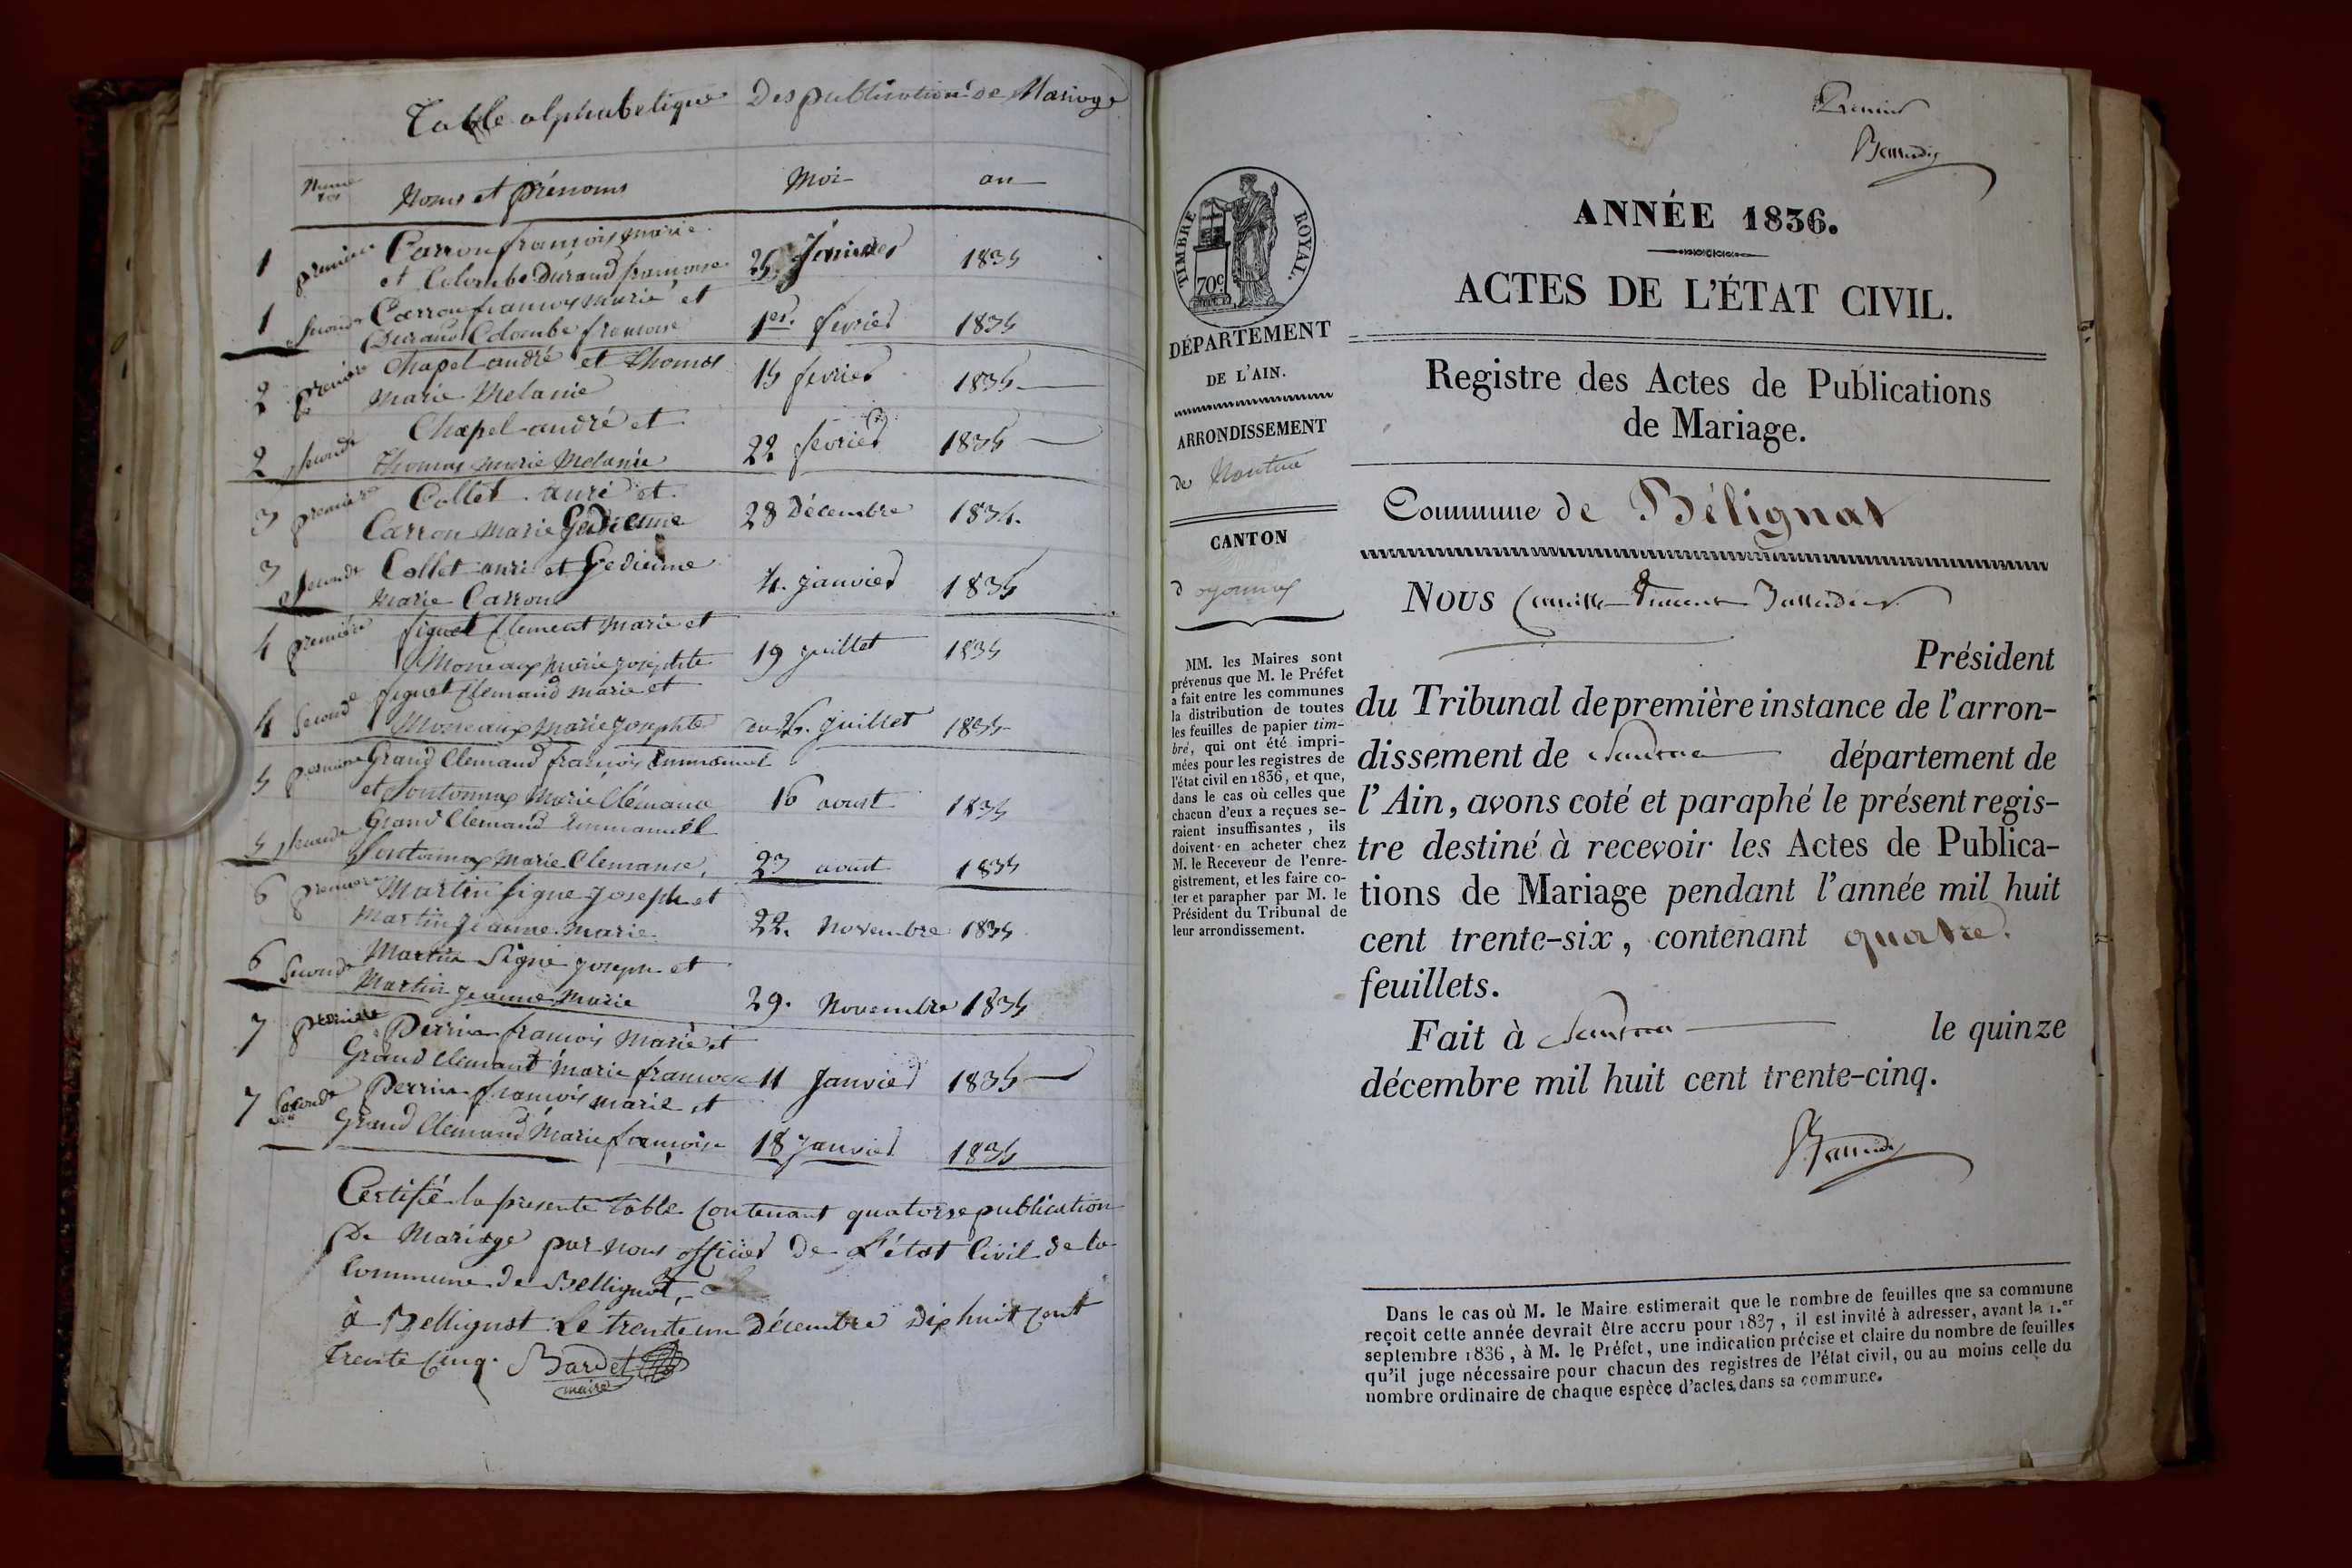 Table alphabetique Des publications de Mariage
Numeros Noms et prénoms Mois an
1 première Carron françois marie
et Colombe Durand francoise 25 Janvier 1835
1 seconde Carron francois Marie et
Durand Colombe francoise 1er. fevrier 1835
2 première Chapel andré et thomas
marie Melanie 15 fevrier 1835
2 seconde Chapel andré et
thomas marie Melanie 22 fevrier 1835
3 première Collet et
Carron marie 28 Décembre 1834.
3 seconde Collet et
Marie Carron 4. janvier 1835
4 première figuet Clement marie et
marie josephte 19 juillet 1835
4 seconde figuet Clemand marie et
marie josephte juillet 1835
5 première Grand Clemand francois Emmanuel
et marie Clémance 16 aoust 1835
5 seconde Grand Clemand Emmanuel
marie Clemanse, 23 aoust 1835
6 premiere Martin figue Joseph et
Martin jeanne marie 22. Novembre 1835
6 seconde Martin figue joseph et
Martin jeanne marie 29. Novembre 1835
7 première Perrin francois Marie et
Grand Clemant Marie francoise 11 Janvier 1835
7 seconde Perrin francois marie et
Grand Clemand Marie françoise 18 Janvier 1835
Certifié la presente table Contenant quatorse publication
De Mariage par nous officier de L'état Civil de la
Commune de Bellignat,
à Bellignat Le trente un Décembre dix huit cent
trente Cinq. Bardet
maire
Premier
ANNÉE 1836.
ACTES DE L'ÉTAT CIVIL.
Registre des Actes de Publications
de Mariage.
Commune de Bélignat
TIMBRE ROYAL.
70c
DÉPARTEMENT
DE L'AIN.
ARRONDISSEMENT
de Nantua
CANTON
d'oyonnax
MM. les Maires sont
prévenus que M. le Préfet
a fait entre les communes
la distribution de toutes
les feuilles de papier tim-
bré, qui ont été impri-
mées pour les registres de
l'état civil en 1836, et que,
dans le cas où celles que
chacun d'eux a reçues se-
raient insuffisantes, ils
doivent en acheter chez
M. le Receveur de l'enre-
gistrement, et les faire co-
ter et parapher par M. le
Président du Tribunal de
leur arrondissement.
NOUS Camille Vincent
Président
du Tribunal de première instance de l'arron-
dissement de Nantua département de
l'Ain, avons coté et paraphé le présent regis-
tre destiné à recevoir les Actes de Publica-
tions de Mariage pendant l'année mil huit
cent trente-six, contenant quatre
feuillets.
Fait à Nantua le quinze
décembre mil huit cent trente-cinq.
Dans le cas où M. le Maire estimerait que le nombre de feuilles que sa commune
reçoit cette année devrait être accru pour 1837, il est invité à adresser, avant le 1.er
septembre 1836, à M. le Préfet, une indication précise et claire du nombre de feuilles
qu'il juge nécessaire pour chacun des registres de l'état civil, ou au moins celle du
nombre ordinaire de chaque espèce d'actes dans sa commune.